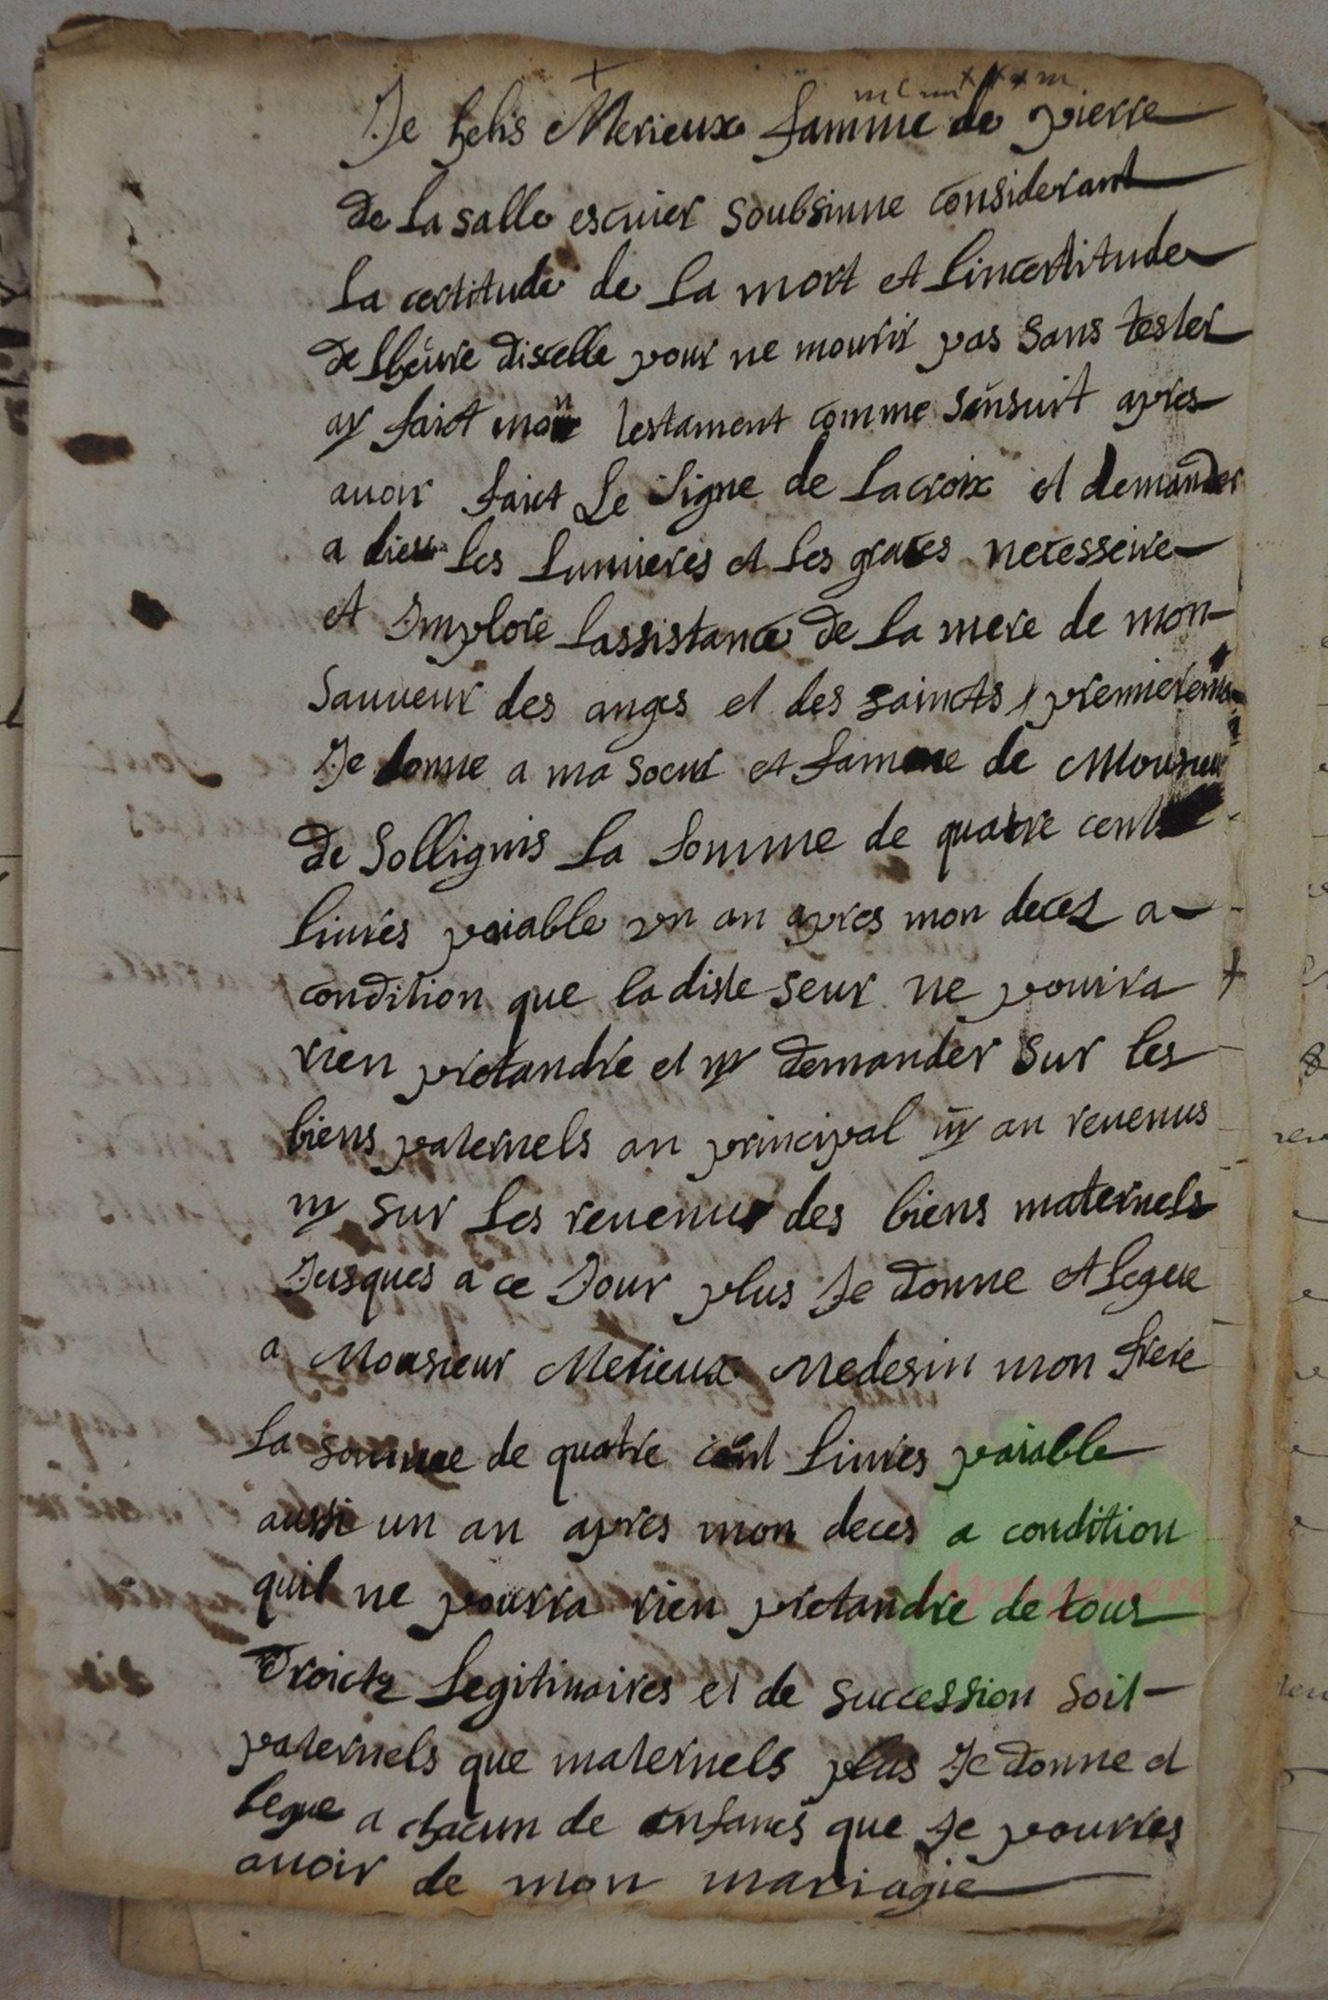 Je helis Merieux famme de pierre
de la salle escuier soubsinne considerant
la certitude de la mort et lincertitude
de lheure dicelle pour ne mourir pas sans tester
ay faict mon testament comme sensuit apres
avoir faict le signe de lacroix et demander
a dieu les lumieres et les graces necesseire
et Implore lassistance de la mere de mon
sauveur des anges et des saincts premierem
Je donne a ma soeur et famme de Monsieur
de sollignis la somme de quatre cent
livres paiable un an apres mon deces a
condition que ladiste seur ne pourra
rien pretandre et ny demander sur les
biens paternels an principal ny an revenus
ny sur les revenus des biens maternels
Jusques a ce Jour plus Je donne et legue
a Monsieur Merieux Medesin mon frere
la somme de quatre cent livres paiable
aussi un an apres mon deces a condition
quil ne pourra rien pretandre de tous
droicts legitimaires et de succession soit
paternels que maternels plus Je donne et
legue a chacun de enfants que Je pourres
avoir de mon mariagie
Aprogemere